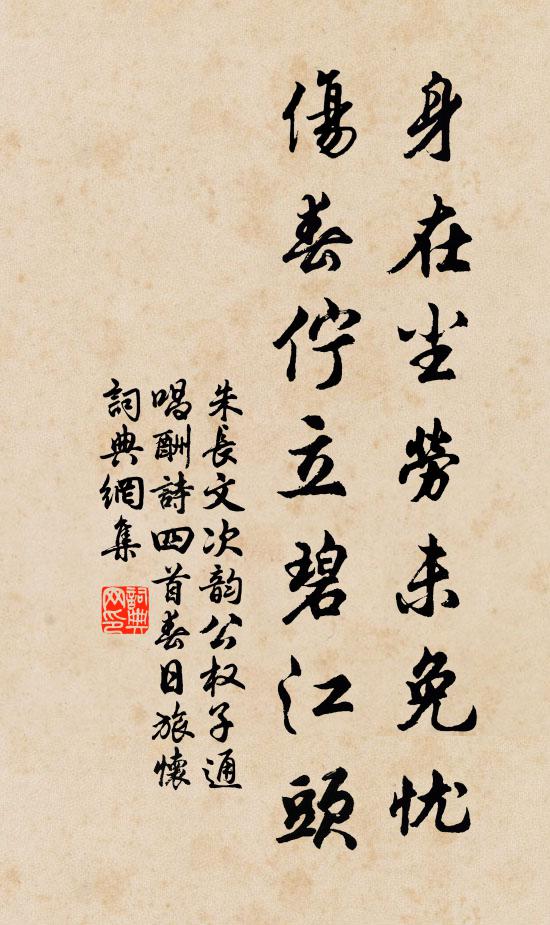 身在尘勞未免忧
傷春佇立碧江頭
朱長文次韵公权子通
唱酬詩四首春日旅懷
詞典網集
詞典网印